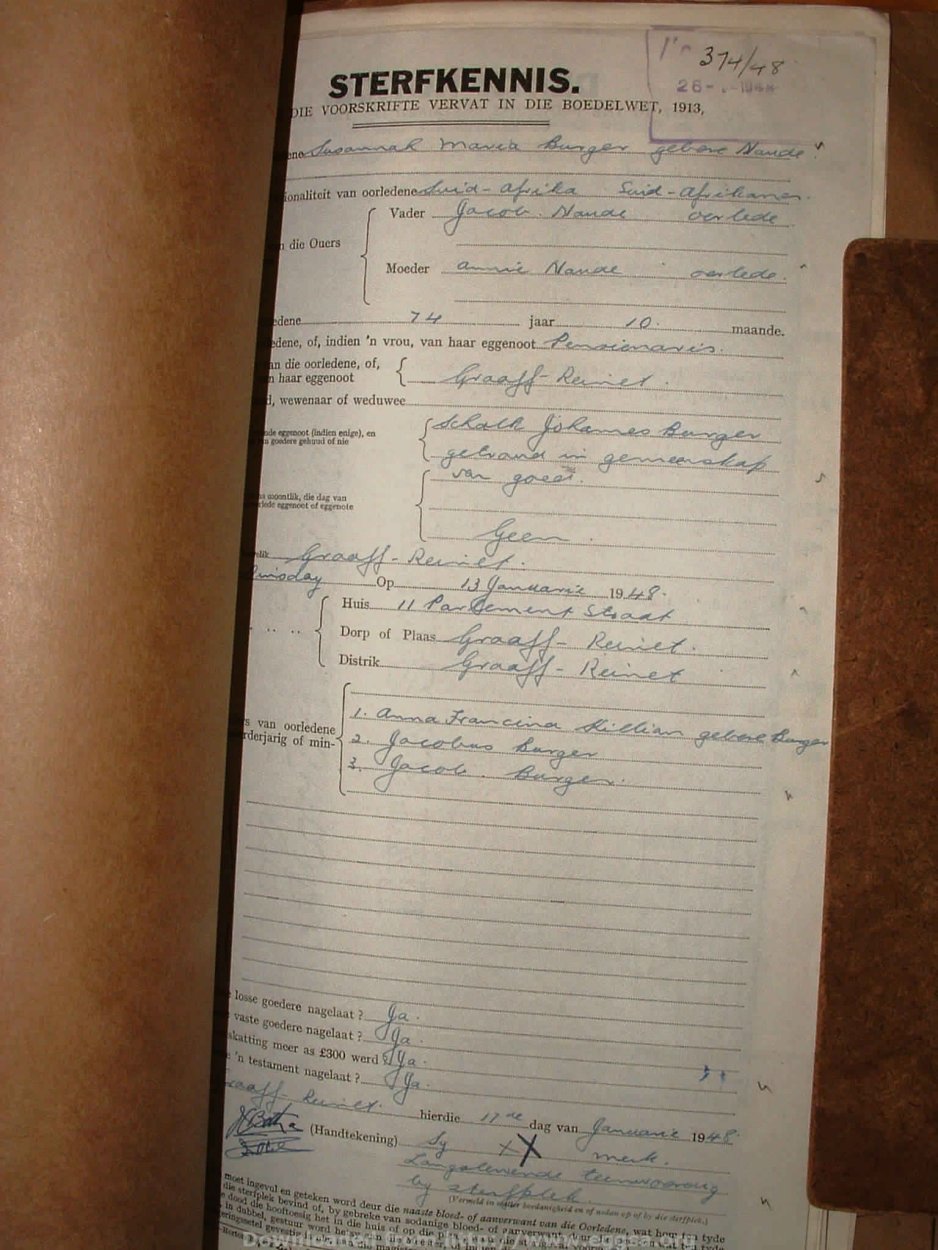 374/48
STERFKENNIS.
DIE VOORSKRIFTE VERVAT IN DIE BOEDELWET, 1913,
ene Susannah Maria Burger gebore Naude
ionaliteit van oorledene Suid-Afrika Suid-Afrikaner.
Vader Jacob Naude oorlede
n die Ouers
Moeder Annie Naude oorlede.
edene 74 jaar 10. maande.
edene, of, indien 'n vrou, van haar eggenoot Pensionaris.
an die oorledene, of,
n haar eggenoot Graaff-Reinet.
d, wewenaar of weduwee
nde eggenoot (indien enige), en
goedere gehuud of nie
Schalk Johannes Burger
getroud in gemeenskap
van goed.
moontlik, die dag van
rlede eggenoot of eggenote
Geen.
elik Graaff-Reinet.
Dinsday Op 13 Januarie 1948.
Huis 11 Parlement Straat
Dorp of Plaas Graaff-Reinet.
Distrik Graaff-Reinet
s van oorledene
rderjarig of min-
1. Anna Francina Killian gebore Burger
2. Jacobus Burger
3. Jacob Burger.
losse goedere nagelaat? Ja.
vaste goedere nagelaat? Ja.
skatting meer as £300 werd? Ja.
e 'n testament nagelaat? Ja.
raaff-Reinet. hierdie 17de dag van Januarie 1948.
(Handtekening) Sy X X merk.
Langslewende teenwoordig
by sterfplek
(Vermeld in watter hoedanigheid en of wodan op of by die sterfplek.)
moet ingevul en geteken word deur die naaste bloed- of aanverwant van die Oorledene, wat hom ten tyde
die sterfplek bevind of, by gebreke van sodanige bloed- of aanverwant
Downloaded from http://www.eggsa.org/